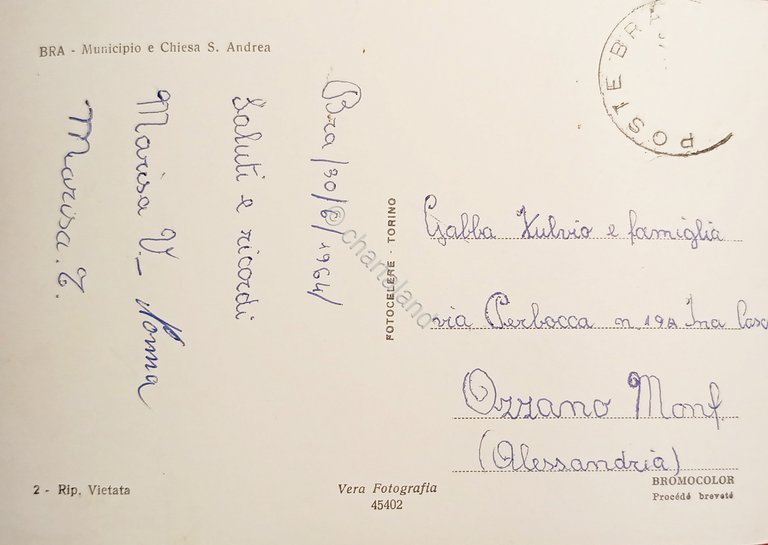 BRA - Municipio e Chiesa S. Andrea
Bra/30/6/1964/
Saluti e ricordi
Marisa V. - Nonna
Marisa. T.
POSTE BRA
FOTOCELERE TORINO
© chartaland
Gabba Fulvio e famiglia
via Perbocca n. 19A Ina Casa
Ozzano Monf.
(Alessandria)
2 - Rip. Vietata
Vera Fotografia
45402
BROMOCOLOR
Procédé breveté